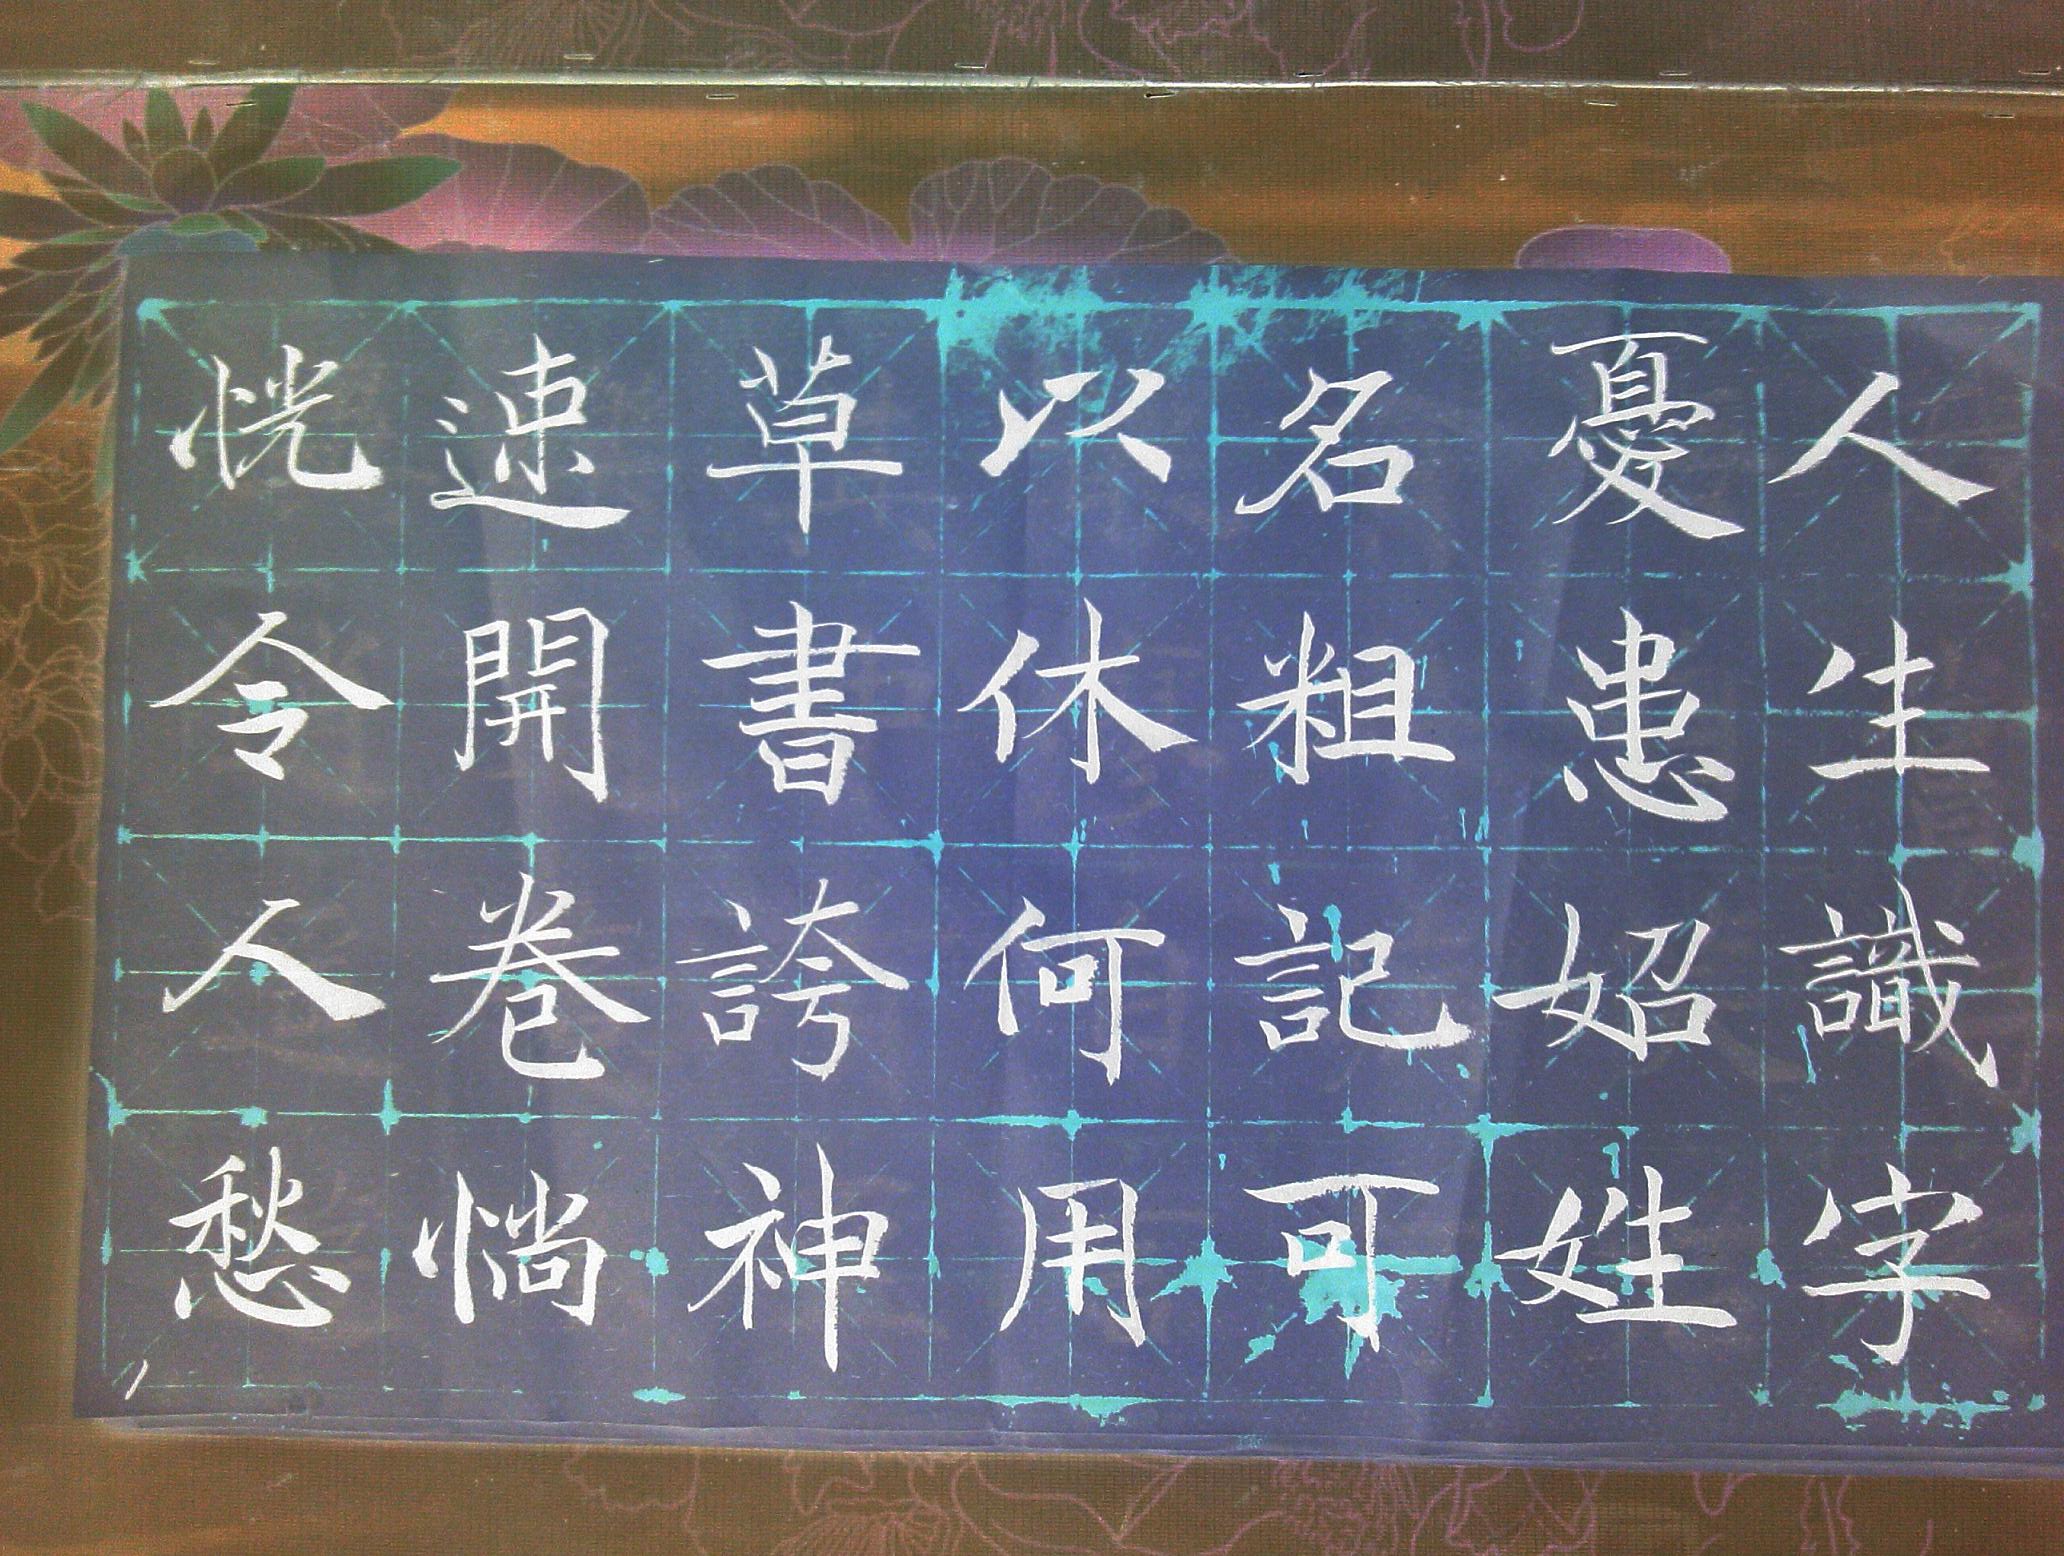 人生識字
憂患始姓
名粗記可
以休何用
草書誇神
速開卷惝
恍令人愁